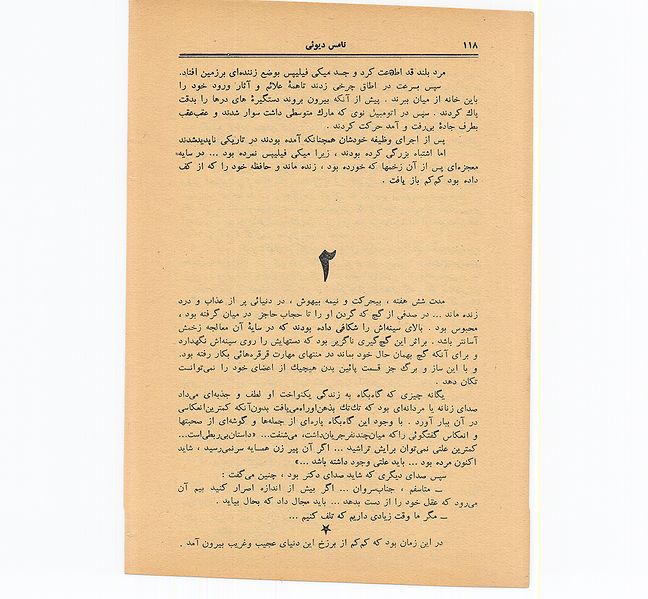 ۱۱۸
تامس دیوئی
مرد بلند قد اطاعت کرد و جسد میکی فیلیپس بوضع زننده‌ای برزمین افتاد.
سپس بسرعت در اطاق چرخی زدند تاهمهٔ علائم و آثار ورود خود را
باین خانه از میان ببرند . پیش از آنکه بیرون بروند دستگیرهٔ های درها را بدقت
پاك کردند . سپس در اتومبیل نوی که مارك متوسطی داشت سوار شدند و عقب‌عقب
بطرف جادهٔ بی‌رفت و آمد حرکت کردند .
پس از اجرای وظیفه خودشان همچنانکه آمده بودند در تاریکی ناپدیدشدند
اما اشتباه بزرگی کرده بودند ، زیرا میکی فیلیپس نمرده بود ... در سایه
معجزه‌ای پس از آن زخمها که خورده بود ، زنده ماند و حافظه خود را که از کف
داده بود کم‌کم باز یافت .
۲
مدت شش هفته ، بیحرکت و نیمه بیهوش ، در دنیائی پر از عذاب و درد
زنده ماند ... در صدفی از گچ که گردن او را تا حجاب حاجز در میان گرفته بود ،
محبوس بود . بالای سینه‌اش را شکافی داده بودند که در سایهٔ آن معالجه زخمش
آسانتر باشد . براثر این گچ‌گیری ناگزیر بود که دستهایش را روی سینه‌اش نگهدارد
و برای آنکه گچ بهمان حال خود بماند در منتهای مهارت قرقره‌هائی بکار رفته بود.
و با این ساز و برگ جز قسمت پائین بدن هیچیك از اعضای خود را نمی‌توانست
تکان دهد .
یگانه چیزی که گاه‌بگاه به زندگی یکنواخت او لطف و جذبه‌ای می‌داد
صدای زنانه یا مردانه‌ای بود که تك‌تك بذهن‌اوراه‌می‌یافت بدون‌آنکه کمترین‌انعکاسی
در آن ببار آورد . با وجود این گاه‌بگاه پاره‌ای از جمله‌ها و گوشه‌ای از صحبتها
و انعکاس گفتگوئی راکه میان‌چندنفرجریان‌داشت، می‌شنفت... «داستان‌بی‌ربطی‌است...
کمترین علتی نمی‌توان برایش تراشید ... اگر آن پیر زن همسایه سرنمی‌رسید ، شاید
اکنون مرده بود ... باید علتی وجود داشته باشد ...»
سپس صدای دیگری که شاید صدای دکتر بود ، چنین می‌گفت :
ــ متاسفم ، جناب‌سروان ... اگر بیش از اندازه اصرار کنید بیم آن
می‌رود که عقل خود را از دست بدهد ... باید مجال داد که بحال بیاید .
ــ مگر ما وقت زیادی داریم که تلف کنیم ...
در این زمان بود که کم‌کم از برزخ این دنیای عجیب وغریب بیرون آمد .